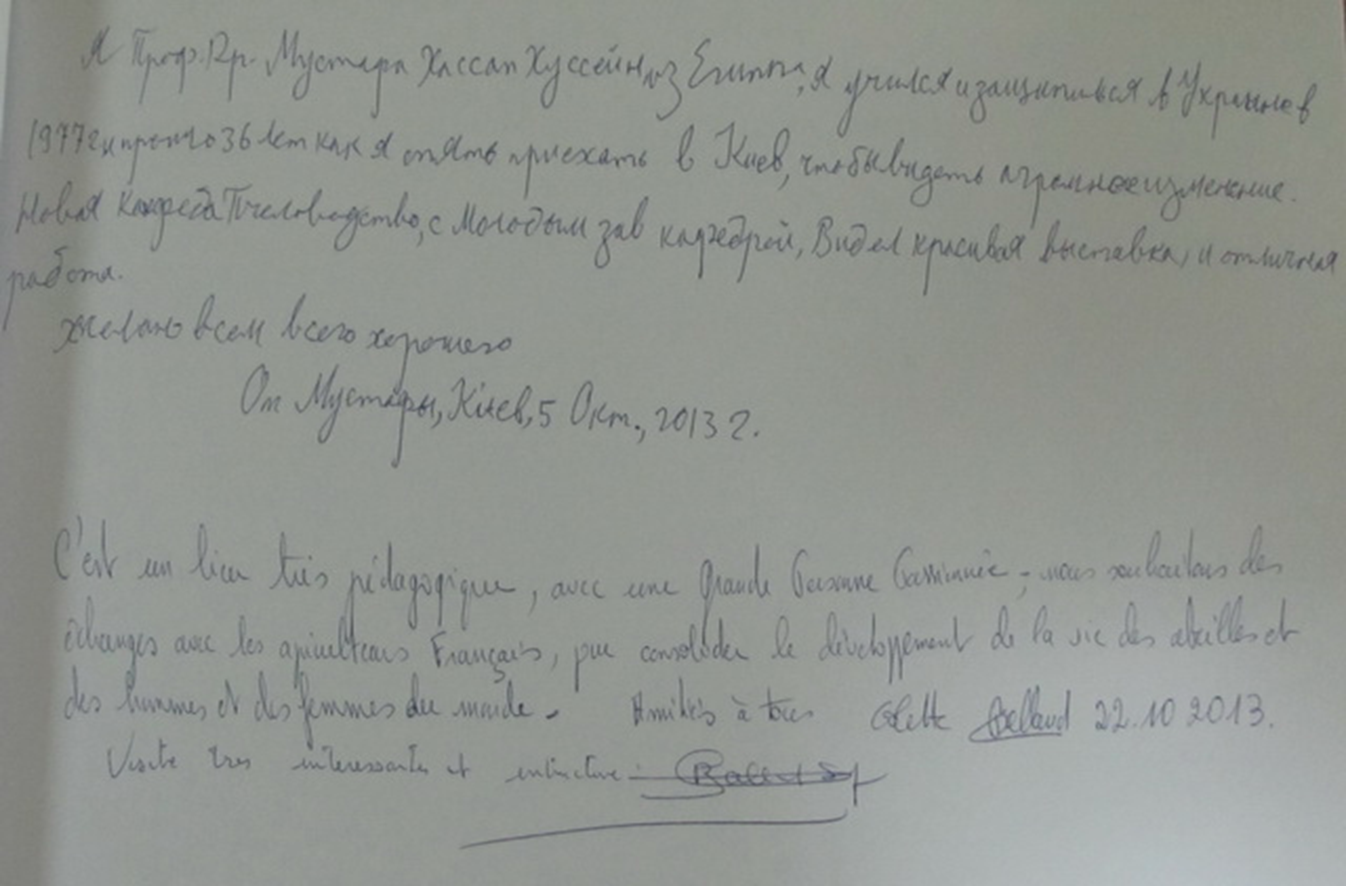 Я Проф. Др. Мустафа Хассан Хуссейн из Египта, я учился и защитился в Украине в
1977г и прошло 36 лет как я опять приехать в Киев, чтобы видеть агромное изменение.
Новая Кафедра Пчеловодство, с молодым зав кафедрой, Видел красивая выставка, и отличная
работа.
желаю всем всего хорошего
От Мустафы, Киев, 5 Окт., 2013 г.
C'est un lieu très pédagogique, avec une grande ; nous souhaitons des
échanges avec les apiculteurs Français, consolider le développement de la vie des abeilles et
des hommes et des femmes du monde. Amitiés à tous Colette 22.10 2013.
Visite très interessante et